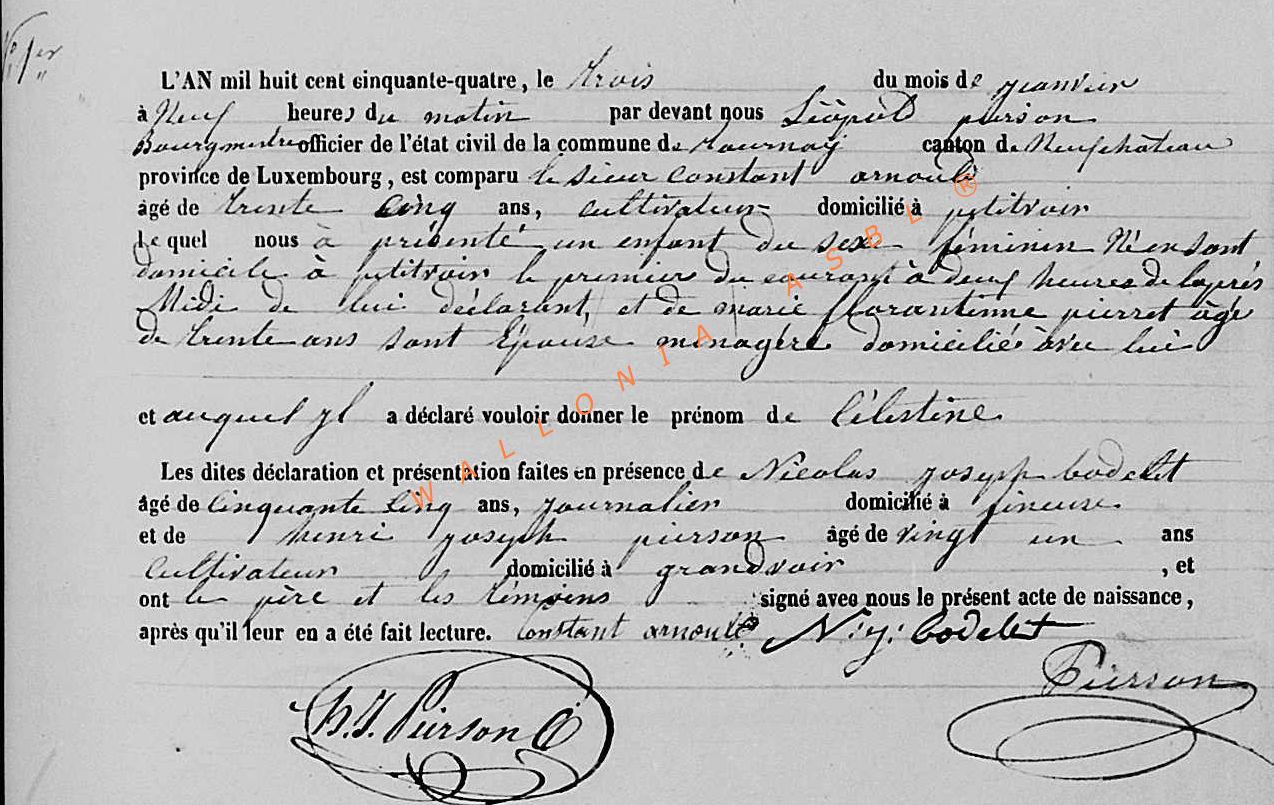 No 1er
L'AN mil huit cent cinquante-quatre, le trois du mois de janvier
à Neuf heures du matin par devant nous Léopold pierson
Bourgmestre officier de l'état civil de la commune de tournay canton de Neufchâteau
province de Luxembourg, est comparu le sieur constant arnould
âgé de trente cinq ans, cultivateur domicilié à petitvoir
Lequel nous à présenté un enfant du sexe féminin Né en sont
domicile à petitvoir le premier du courant à deux heures de laprés
Midi de lui déclarant, et de marie florantinne pierret âgé
de trente ans sont Epouse ménagère domicilié avec lui
et auquel yl a déclaré vouloir donner le prénom de Célestine
Les dites déclaration et présentation faites en présence de Nicolas joseph bodelet
âgé de Cinquante Cinq ans, journalier domicilié à fineuse
et de henri joseph pierson âgé de vingt un ans
Cultivateur domicilié à grandvoir , et
ont le père et les témoins signé avec nous le présent acte de naissance,
après qu'il leur en a été fait lecture. Constant arnould N. j. bodelet
Pierson
h. J. Pierson
WALLONIA ASBL ®